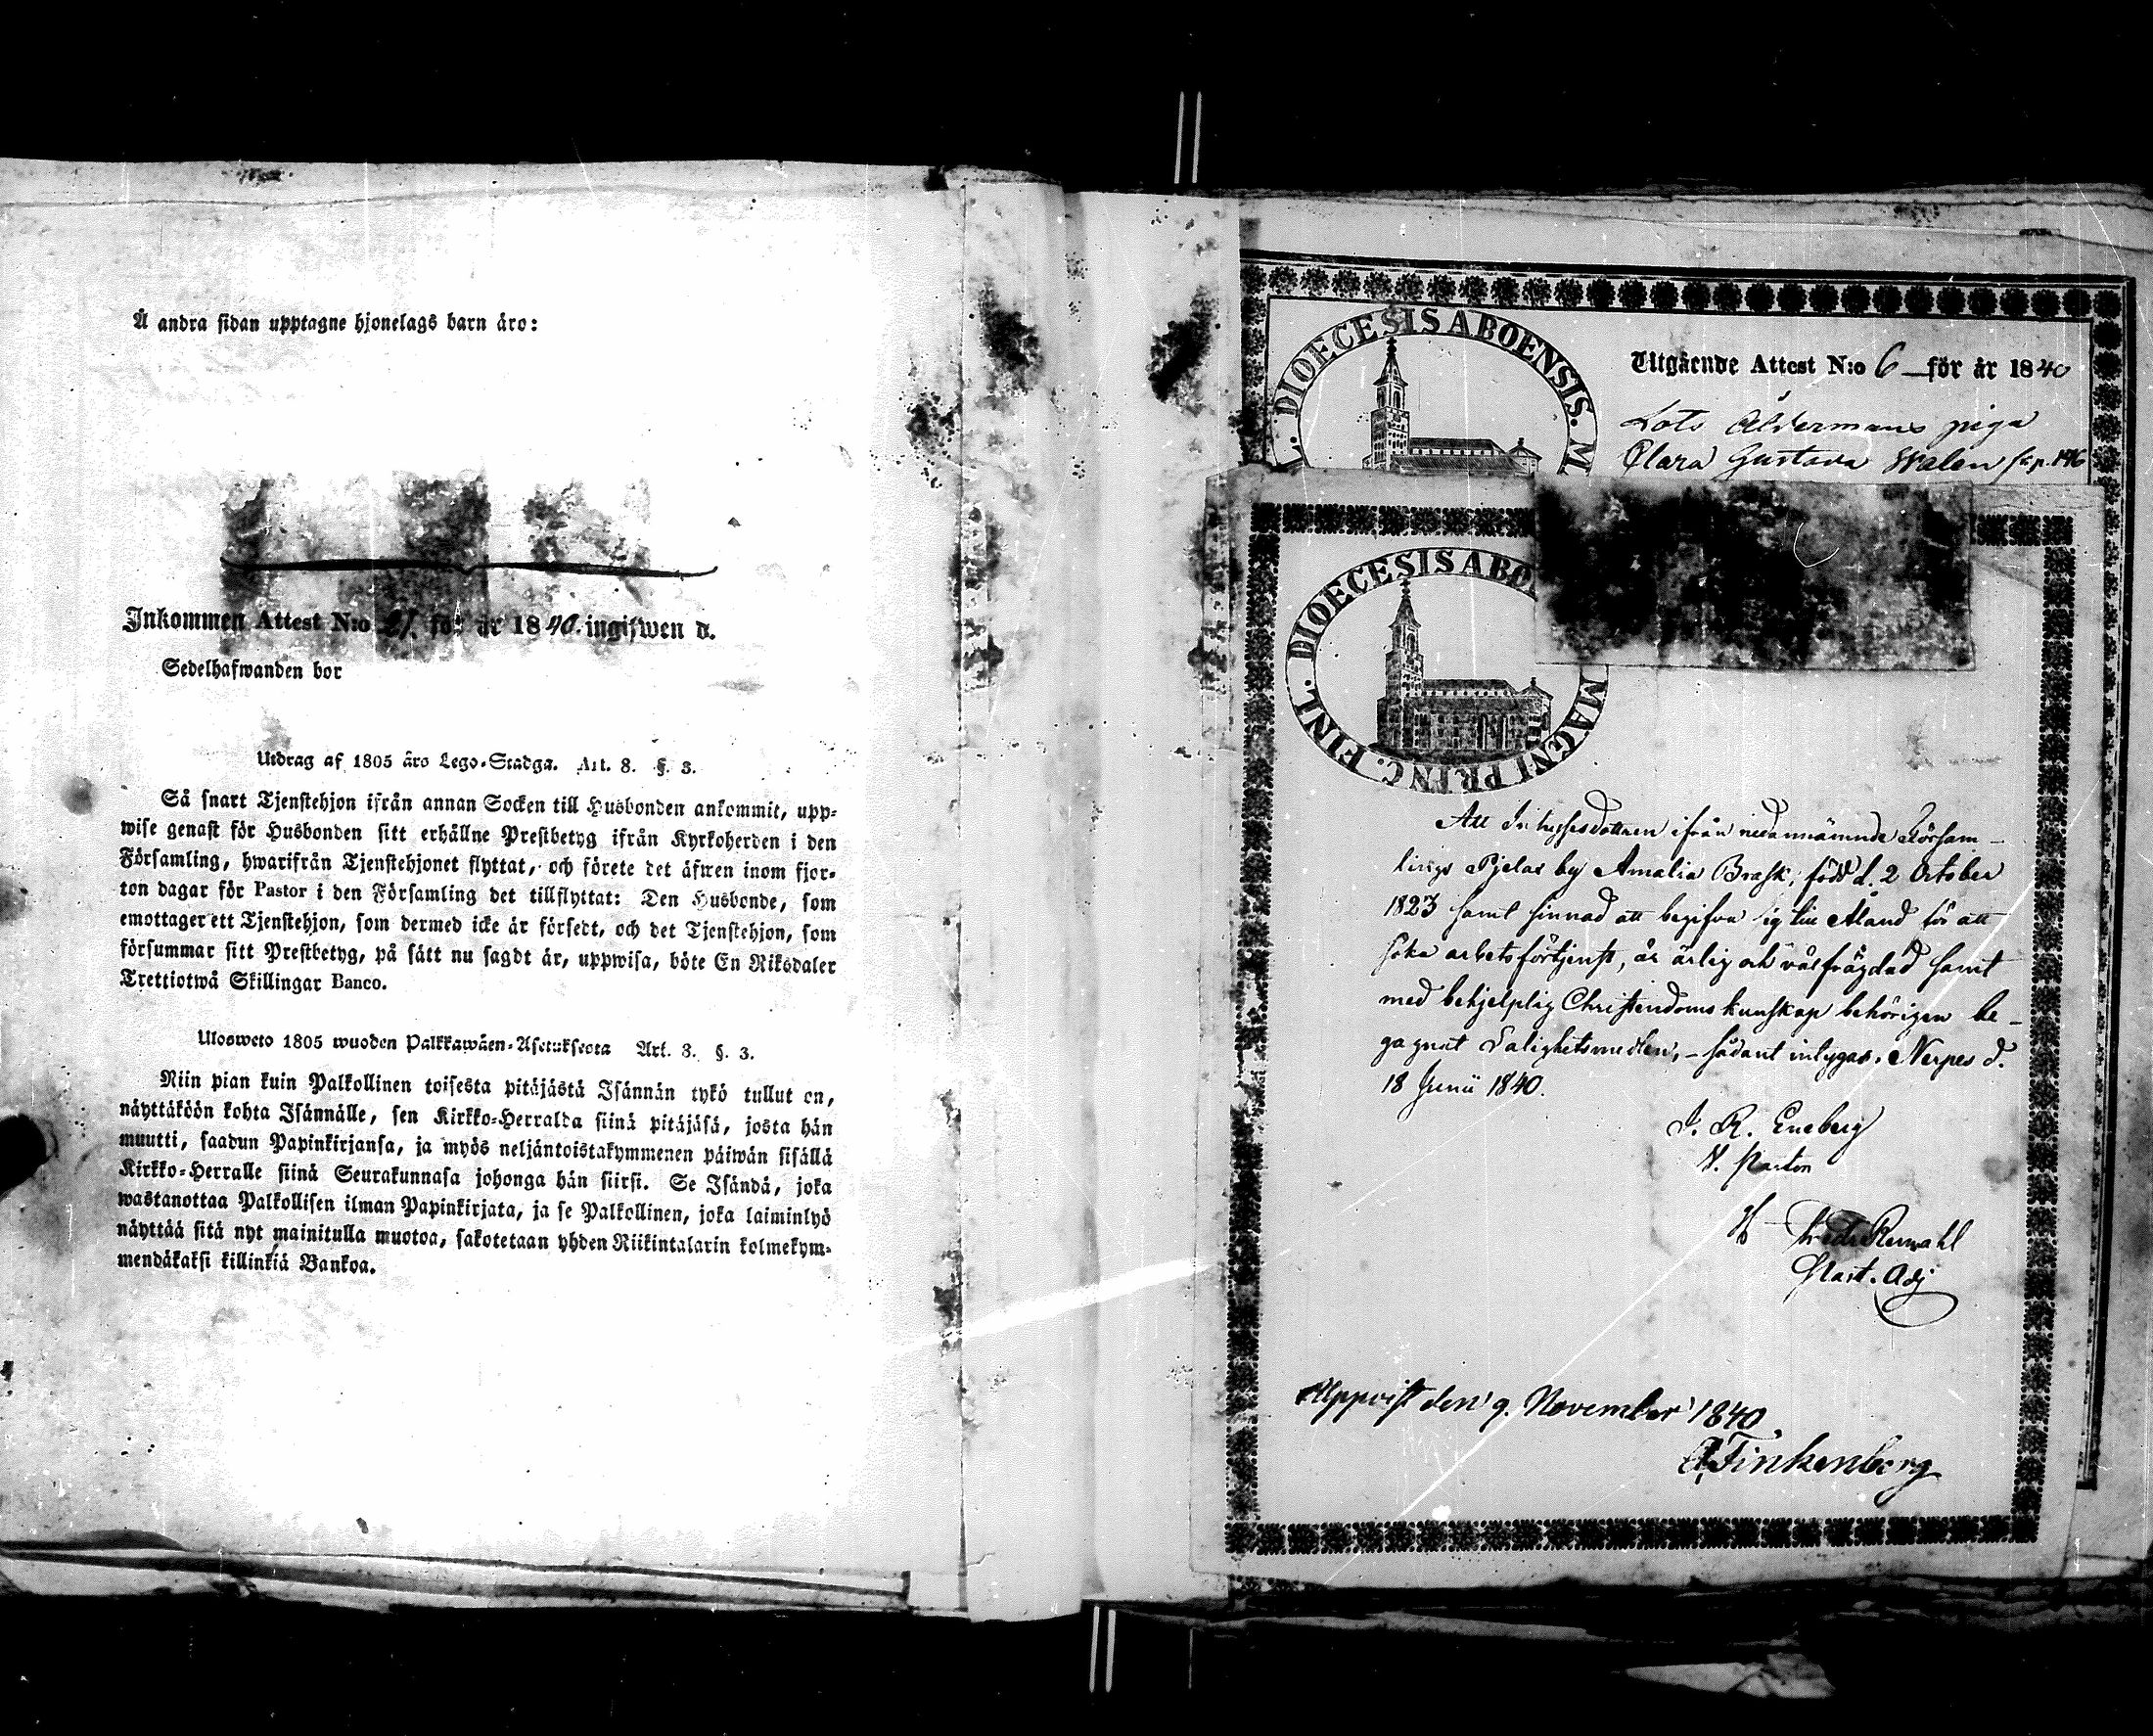 Å andra sidan upptagne hjonelags barn äro:
Inkommen Attest N:o 21. för år 1840. ingifwen d.
Sedelhafwanden bor
Utdrag af 1805 års Lego-Stadga. Art. 8. §. 3.
Så snart Tjenstehjon ifrån annan Socken till Husbonden ankommit, upp-
wise genast för Husbonden sitt erhållne Prestbetyg ifrån Kyrkoherden i den
Församling, hwarifrån Tjenstehjonet flyttat, och förete det äfwen inom fjor-
ton dagar för Pastor i den Församling det tillflyttat: Den Husbonde, som
emottager ett Tjenstehjon, som dermed icke är försedt, och det Tjenstehjon, som
försummar sitt Prestbetyg, på sätt nu sagdt är, uppwisa, böte En Riksdaler
Trettiotwå Skillingar Banco.
Ulosweto 1805 wuoden Palkkawäen-Asetuksesta Art. 8. §. 3.
Niin pian kuin Palkollinen toisesta pitäjästä Isännän tykö tullut on,
näyttäköön kohta Isännälle, sen Kirkko-Herralda siinä pitäjäsä, josta hän
muutti, saadun Papinkirjansa, ja myös neljäntoistakymmenen päiwän sisällä
Kirkko-Herralle siinä Seurakunnasa johonga hän siirsi. Se Isändä, joka
wastanottaa Palkollisen ilman Papinkirjata, ja se Palkollinen, joka laiminlyö
näyttää sitä nyt mainitulla muotoa, sakotetaan yhden Riikintalarin kolmekym-
mendäkaksi killinkiä Bankoa.
DIOECESIS ABOENSIS. M
Utgående Attest N:o 6 för år 1840
Lots Åldermans piga
Clara Gustava Walen pag. 146
DIOECESIS ABO MAGNI PRINC. FINL.
Att Inhysesdottren ifrån nedannämnde Försam-
lings Pjelax by Amalia Brask, född d. 2 October
1823 samt sinnad att begifva sig till Åland för att
söka arbetsförtjenst, är ärlig och välfrägdad samt
med behjelplig Christendoms kunskap behörigen be-
gagnat Salighetsmedlen, - sådant intygas. Nerpes d.
18 Junii 1840.
J. R. Eneberg
V. Pastor
Past. Adj
Uppvist den 9. November 1840
A Finkenberg